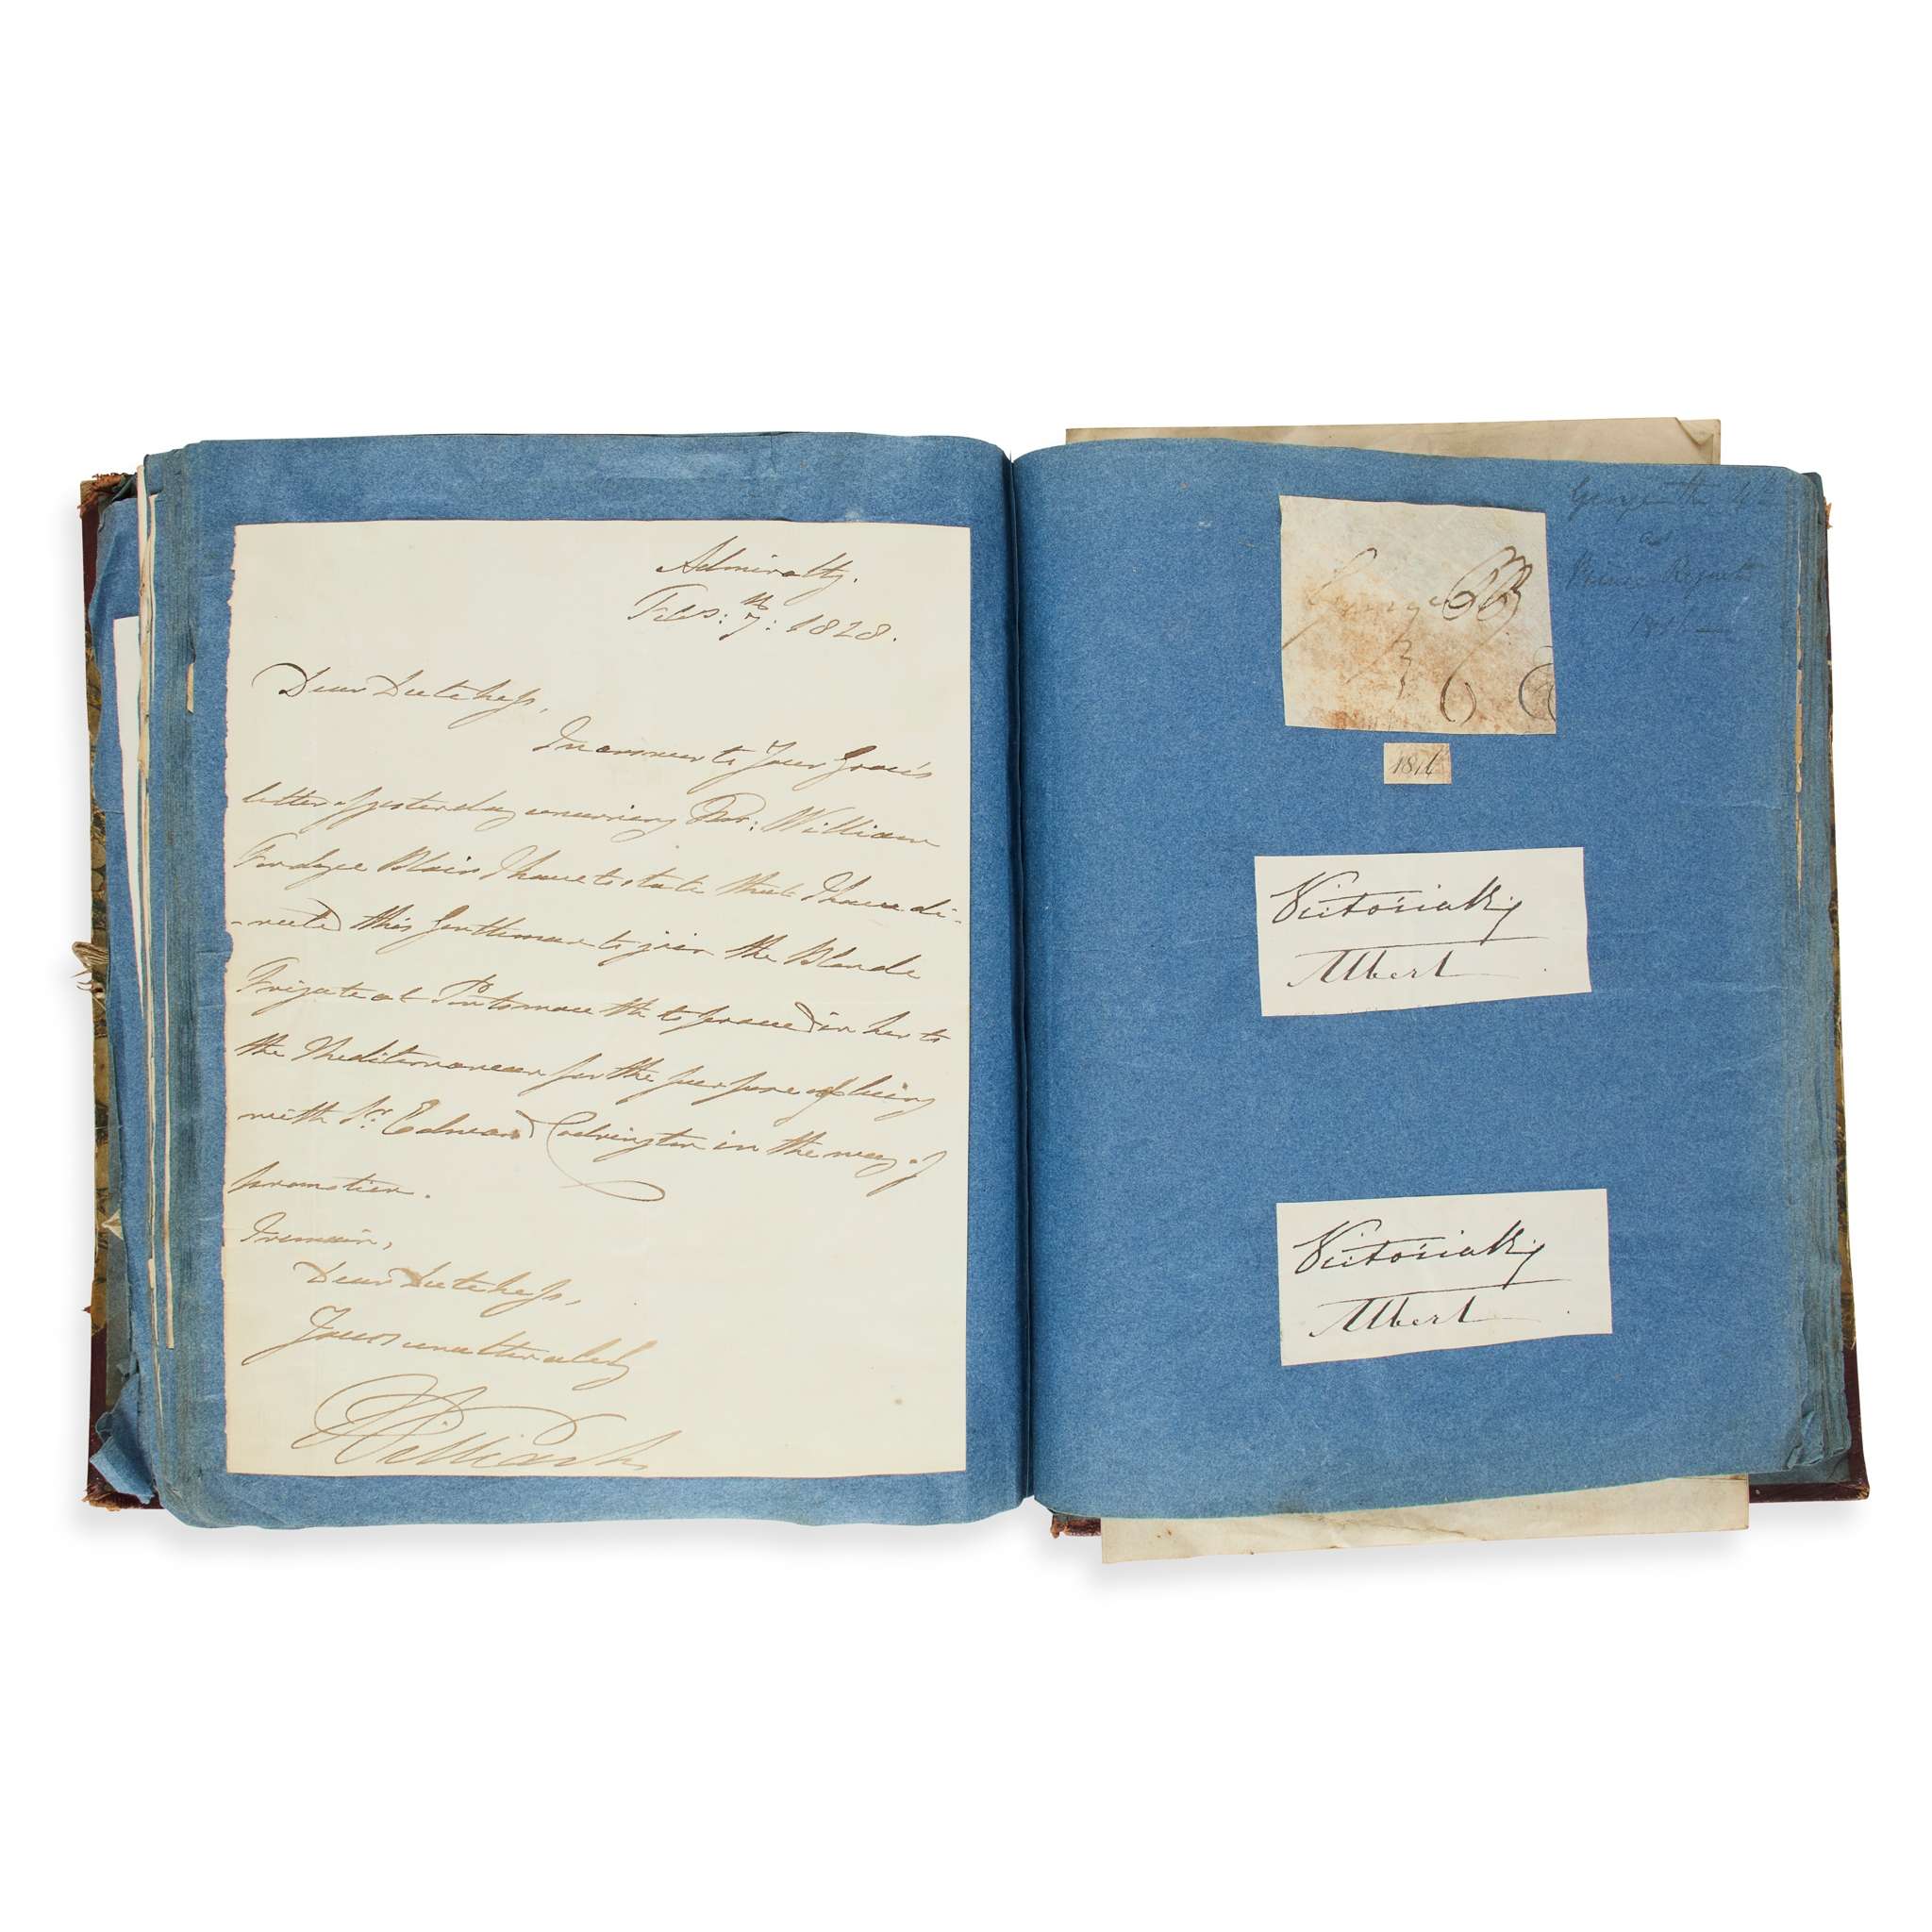 Admiralty.
Feb: 7th: 1828.
Dear Dutchess,
In answer to Your Grace's
letter of yesterday concerning Mr: William
Fordyce Blair I have to state that I have di-
-rected this Gentleman to join the Blonde
Frigate at Portsmouth to proceed in her to
the Mediterranean for the purpose of being
with Sr. Edward Codrington in the way of
promotion.
I remain,
Dear Dutchess,
Yours unalterably
William
George PR
1816
George the 4th
as
Prince Regent
Victoria R
Albert
Victoria R
Albert